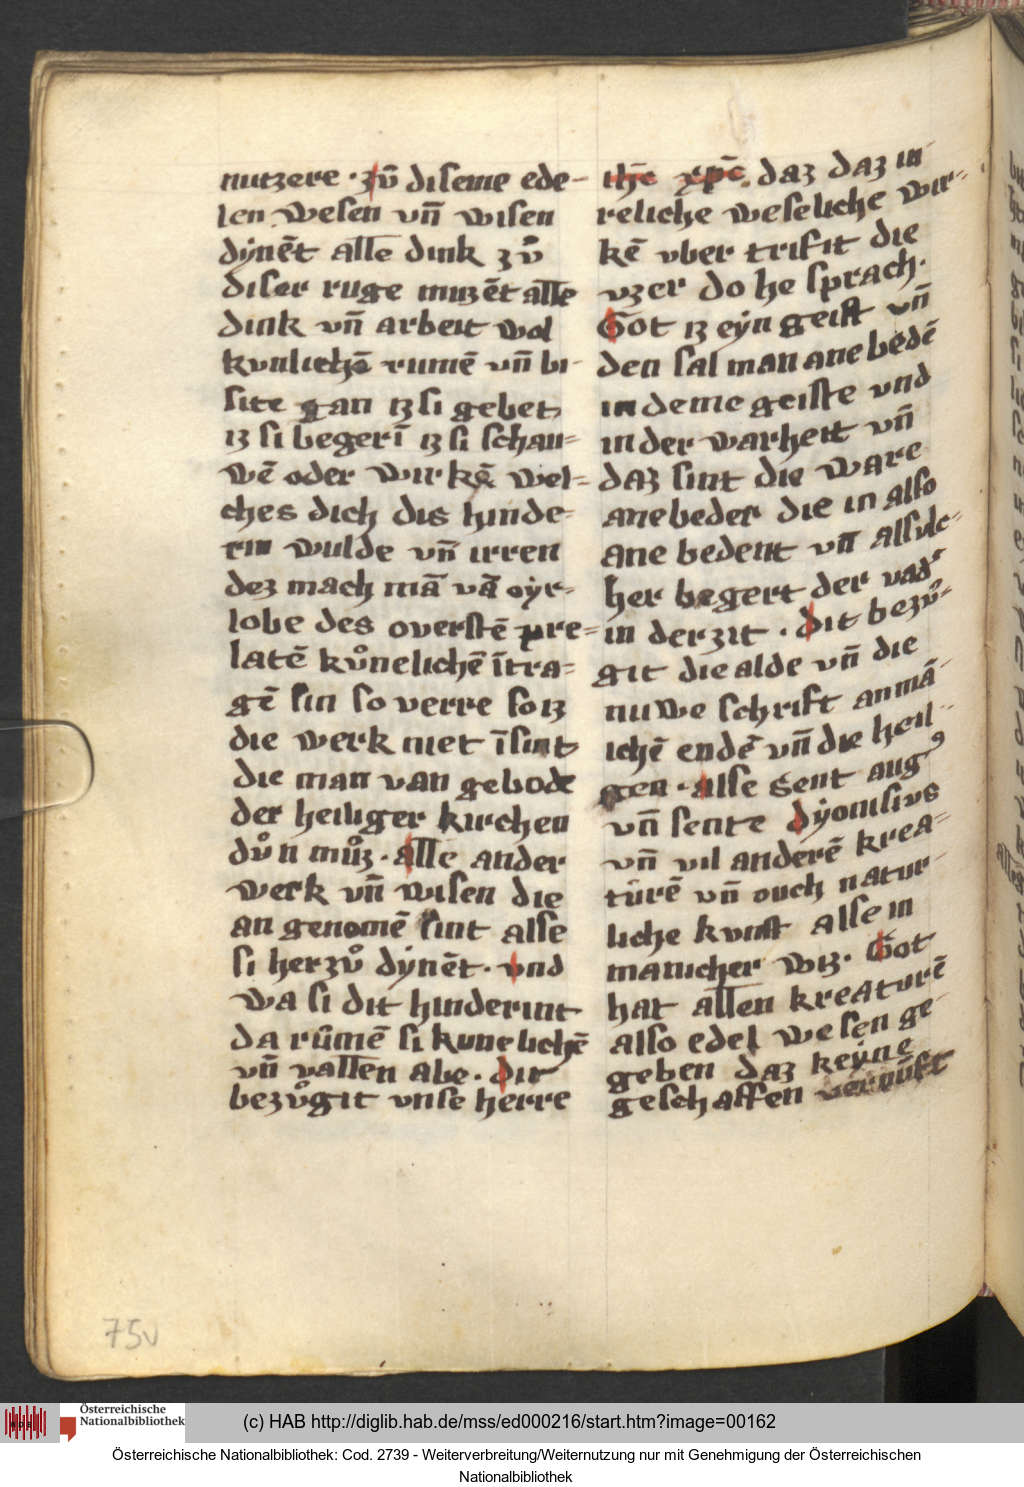 nutzere · zů diseme ede-
len wesen vn̄ wisen
dẏnēt alle dink zů
diser ruge muzēt alle
dink vn̄ arbeit wol
kvnlichē rumē vn̄ bi
site gan iz si gebet
iz si begerī iz si schau-
wē oder wirkē wel-
ches dich dis hinde-
rin wulde vn̄ irren
dez mach mā vā oyr-
lobe des overstē pre-
latē kůnelichē ītra-
gē sin so verre so iz
die werk niet īsint
die man van gebode
der heiliger kirchen
důn můz · alle ander
werk vn̄ wisen die
an genomē sint alse
si herzů dẏnēt · vnd
wa si dit hinderint
da rumē si kunelichē
vn̄ vallen abe · dit
bezůgit vnse herre
ihc̄ xpc̄ . daz daz in
reliche weseliche wir-
kē vber trifit die
vzer do he sprach ·
Got iz eẏn geist vn̄
den sal man ane bedē
in deme geiste vnd
in der warheit vn̄
daz sint die ware
anebeder die in also
ane bedent vn̄ alsulc-
her begert der vadˢ
in der zit · dit bezů-
git die alde vn̄ die
nuwe schrift an mā
ichē endē vn̄ die heil
gen · alse Sent augꝰ
vn̄ sente dẏonisivs
vn̄ vil anderē krea-
türē vn̄ ouch natur
liche kvnst alse in
manicher wiz · Got
hat allen kreaturē
also edel wesen ge
geben daz keẏne
geschaffen vernüft
75v
Österreichische
Nationalbibliothek
(c) HAB http://diglib.hab.de/mss/ed000216/start.htm?image=00162
Österreichische Nationalbibliothek: Cod. 2739 - Weiterverbreitung/Weiternutzung nur mit Genehmigung der Österreichischen
Nationalbibliothek